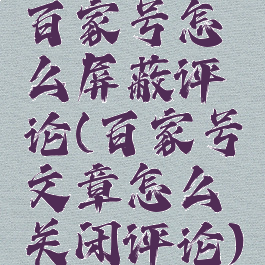 百家号怎
么屏蔽评
论(百家号
文章怎么
关闭评论)